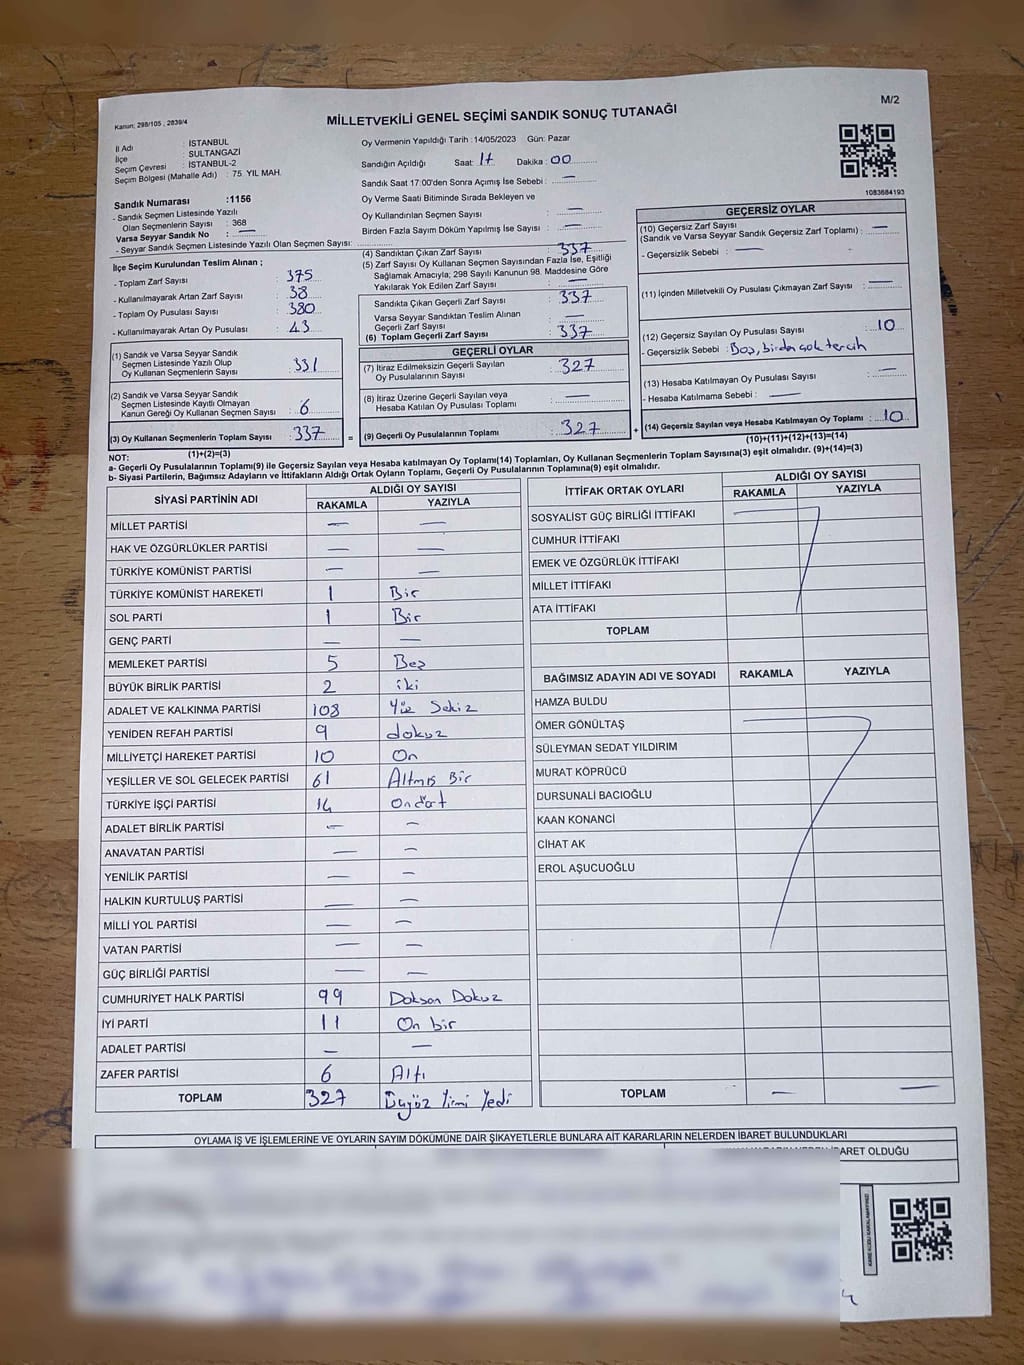 M/2
MİLLETVEKİLİ GENEL SEÇİMİ SANDIK SONUÇ TUTANAĞI
Kanun: 298/105 , 2839/4
İl Adı : İSTANBUL
İlçe : SULTANGAZİ
Seçim Çevresi : İSTANBUL-2
Seçim Bölgesi (Mahalle Adı) : 75. YIL MAH.
Oy Vermenin Yapıldığı Tarih : 14/05/2023 Gün: Pazar
Sandığın Açıldığı Saat: 17 Dakika : 00
Sandık Saat 17:00'den Sonra Açılmış İse Sebebi : —
Oy Verme Saati Bitiminde Sırada Bekleyen ve
Oy Kullandırılan Seçmen Sayısı : —
Birden Fazla Sayım Döküm Yapılmış İse Sayısı : —
1083684193
Sandık Numarası :1156
- Sandık Seçmen Listesinde Yazılı
Olan Seçmenlerin Sayısı : 368
Varsa Seyyar Sandık No : —
- Seyyar Sandık Seçmen Listesinde Yazılı Olan Seçmen Sayısı:
İlçe Seçim Kurulundan Teslim Alınan ;
- Toplam Zarf Sayısı : 375
- Kullanılmayarak Artan Zarf Sayısı : 38
- Toplam Oy Pusulası Sayısı : 380
- Kullanılmayarak Artan Oy Pusulası : 43
(1) Sandık ve Varsa Seyyar Sandık
Seçmen Listesinde Yazılı Olup
Oy Kullanan Seçmenlerin Sayısı : 331
(2) Sandık ve Varsa Seyyar Sandık
Seçmen Listesinde Kayıtlı Olmayan
Kanun Gereği Oy Kullanan Seçmen Sayısı : 6
(3) Oy Kullanan Seçmenlerin Toplam Sayısı : 337
(1)+(2)=(3)
(4) Sandıktan Çıkan Zarf Sayısı : 337
(5) Zarf Sayısı Oy Kullanan Seçmen Sayısından Fazla İse, Eşitliği
Sağlamak Amacıyla; 298 Sayılı Kanunun 98. Maddesine Göre
Yakılarak Yok Edilen Zarf Sayısı : —
Sandıkta Çıkan Geçerli Zarf Sayısı : 337
Varsa Seyyar Sandıktan Teslim Alınan
Geçerli Zarf Sayısı : —
(6) Toplam Geçerli Zarf Sayısı : 337
GEÇERLİ OYLAR
(7) İtiraz Edilmeksizin Geçerli Sayılan
Oy Pusulalarının Sayısı : 327
(8) İtiraz Üzerine Geçerli Sayılan veya
Hesaba Katılan Oy Pusulası Toplamı : —
= (9) Geçerli Oy Pusulalarının Toplamı : 327 +
GEÇERSİZ OYLAR
(10) Geçersiz Zarf Sayısı
(Sandık ve Varsa Seyyar Sandık Geçersiz Zarf Toplamı) : —
- Geçersizlik Sebebi : —
(11) İçinden Milletvekili Oy Pusulası Çıkmayan Zarf Sayısı : —
(12) Geçersiz Sayılan Oy Pusulası Sayısı : 10
- Geçersizlik Sebebi : Boş, birden çok tercih
(13) Hesaba Katılmayan Oy Pusulası Sayısı : —
- Hesaba Katılmama Sebebi : —
(14) Geçersiz Sayılan veya Hesaba Katılmayan Oy Toplamı : 10
(10)+(11)+(12)+(13)=(14)
NOT:
a- Geçerli Oy Pusulalarının Toplamı(9) ile Geçersiz Sayılan veya Hesaba katılmayan Oy Toplamı(14) Toplamları, Oy Kullanan Seçmenlerin Toplam Sayısına(3) eşit olmalıdır. (9)+(14)=(3)
b- Siyasi Partilerin, Bağımsız Adayların ve İttifakların Aldığı Ortak Oyların Toplamı, Geçerli Oy Pusulalarının Toplamına(9) eşit olmalıdır.
SİYASİ PARTİNİN ADI ALDIĞI OY SAYISI
RAKAMLA YAZIYLA
MİLLET PARTİSİ — —
HAK VE ÖZGÜRLÜKLER PARTİSİ — —
TÜRKİYE KOMÜNİST PARTİSİ — —
TÜRKİYE KOMÜNİST HAREKETİ 1 Bir
SOL PARTİ 1 Bir
GENÇ PARTİ — —
MEMLEKET PARTİSİ 5 Beş
BÜYÜK BİRLİK PARTİSİ 2 iki
ADALET VE KALKINMA PARTİSİ 108 Yüz Sekiz
YENİDEN REFAH PARTİSİ 9 dokuz
MİLLİYETÇİ HAREKET PARTİSİ 10 On
YEŞİLLER VE SOL GELECEK PARTİSİ 61 Altmış Bir
TÜRKİYE İŞÇİ PARTİSİ 14 Ondört
ADALET BİRLİK PARTİSİ — —
ANAVATAN PARTİSİ — —
YENİLİK PARTİSİ — —
HALKIN KURTULUŞ PARTİSİ — —
MİLLİ YOL PARTİSİ — —
VATAN PARTİSİ — —
GÜÇ BİRLİĞİ PARTİSİ — —
CUMHURİYET HALK PARTİSİ 99 Doksan Dokuz
İYİ PARTİ 11 On bir
ADALET PARTİSİ — —
ZAFER PARTİSİ 6 Altı
TOPLAM 327 Üçyüz Yirmi Yedi
İTTİFAK ORTAK OYLARI ALDIĞI OY SAYISI
RAKAMLA YAZIYLA
SOSYALİST GÜÇ BİRLİĞİ İTTİFAKI
CUMHUR İTTİFAKI
EMEK VE ÖZGÜRLÜK İTTİFAKI
MİLLET İTTİFAKI
ATA İTTİFAKI
TOPLAM
BAĞIMSIZ ADAYIN ADI VE SOYADI RAKAMLA YAZIYLA
HAMZA BULDU
ÖMER GÖNÜLTAŞ
SÜLEYMAN SEDAT YILDIRIM
MURAT KÖPRÜCÜ
DURSUNALİ BACIOĞLU
KAAN KONANCİ
CİHAT AK
EROL AŞUCUOĞLU
TOPLAM — —
OYLAMA İŞ VE İŞLEMLERİNE VE OYLARIN SAYIM DÖKÜMÜNE DAİR ŞİKAYETLERLE BUNLARA AİT KARARLARIN NELERDEN İBARET BULUNDUKLARI
İBARET OLDUĞU